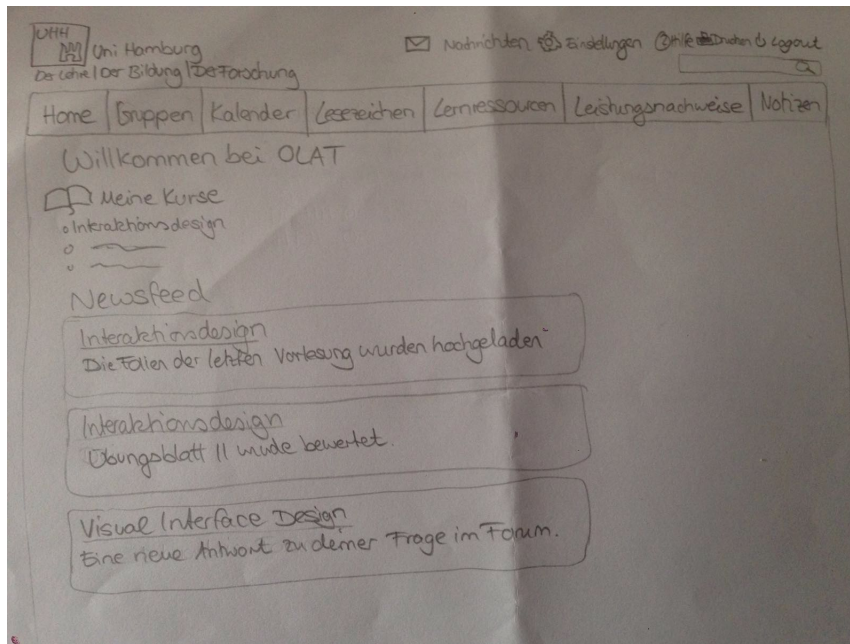 UHH
Uni Hamburg
Der Lehre | Der Bildung | Der Forschung
Nachrichten Einstellungen Hilfe Drucken Logout
Home Gruppen Kalender Lesezeichen Lernressourcen Leistungsnachweise Notizen
Willkommen bei OLAT
Meine Kurse
Interaktionsdesign
Newsfeed
Interaktionsdesign
Die Folien der letzten Vorlesung wurden hochgeladen
Interaktionsdesign
Übungsblatt 11 wurde bewertet.
Visual Interface Design
Eine neue Antwort zu deiner Frage im Forum.